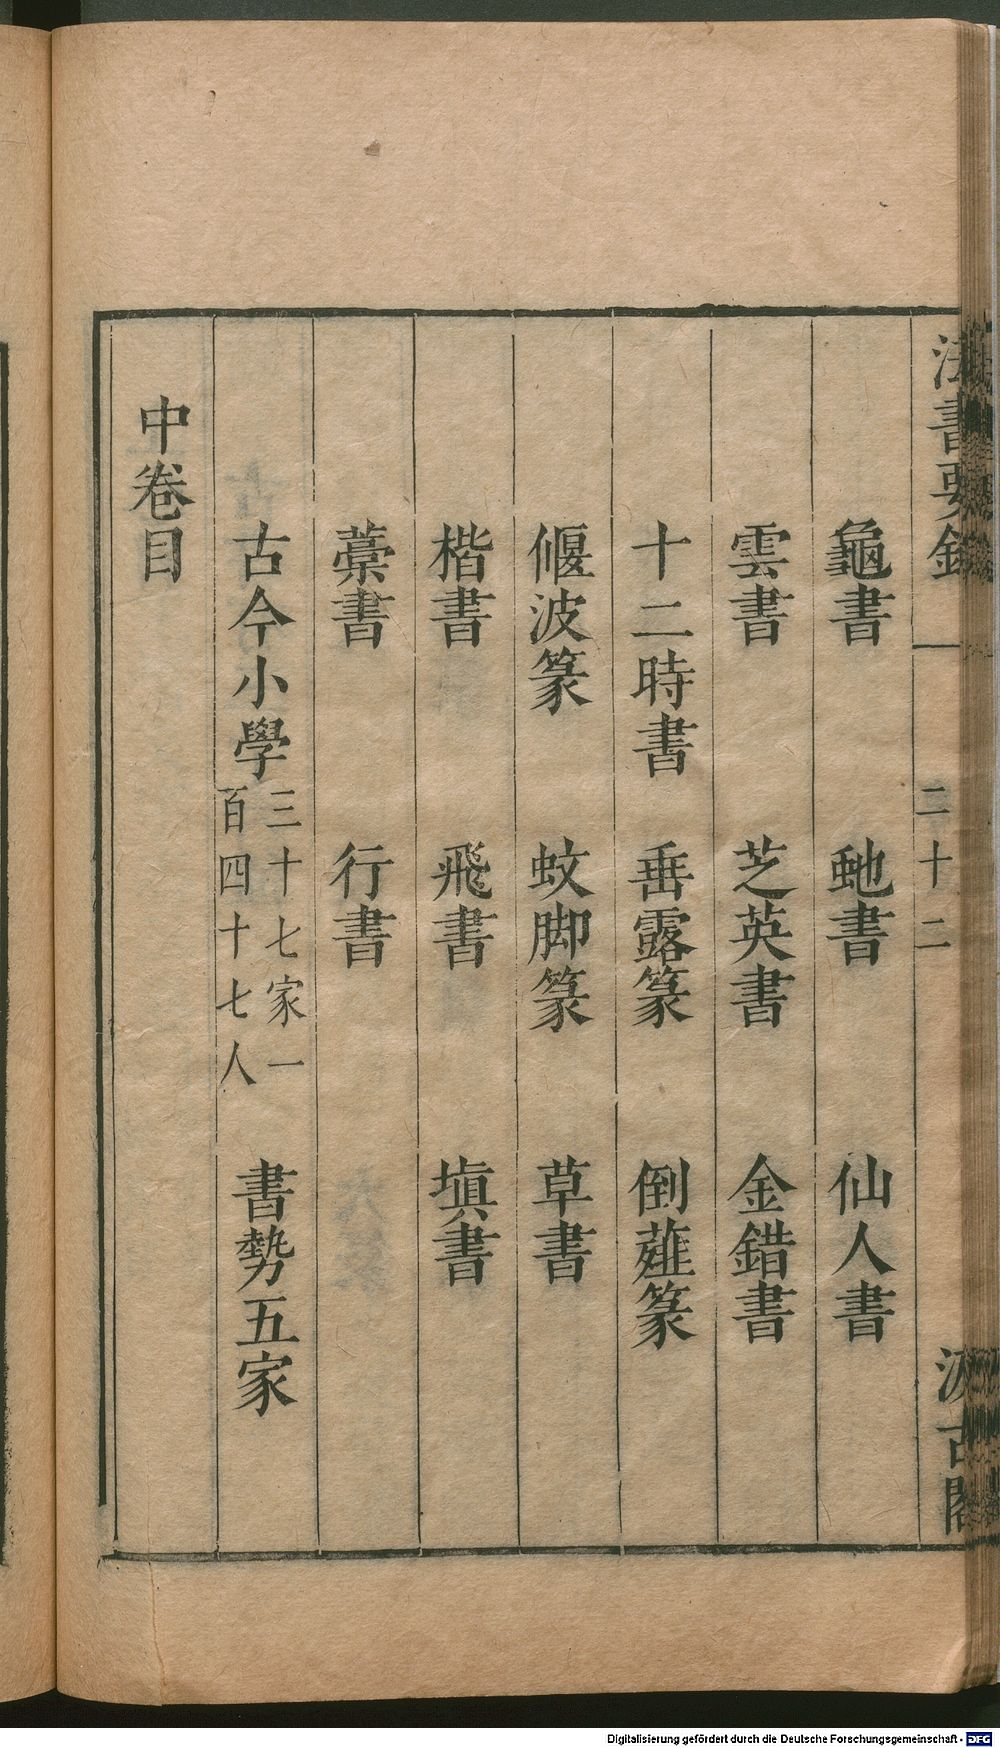 法書要錄 二十二 汲古閣
龜書 虵書 仙人書
雲書 芝英書 金錯書
十二時書 垂露篆 倒薤篆
偃波篆 蚊脚篆 草書
楷書 飛書 塡書
藁書 行書
古今小學三十七家一百四十七人 書勢五家
中卷目
Digitalisierung gefördert durch die Deutsche Forschungsgemeinschaft - DFG